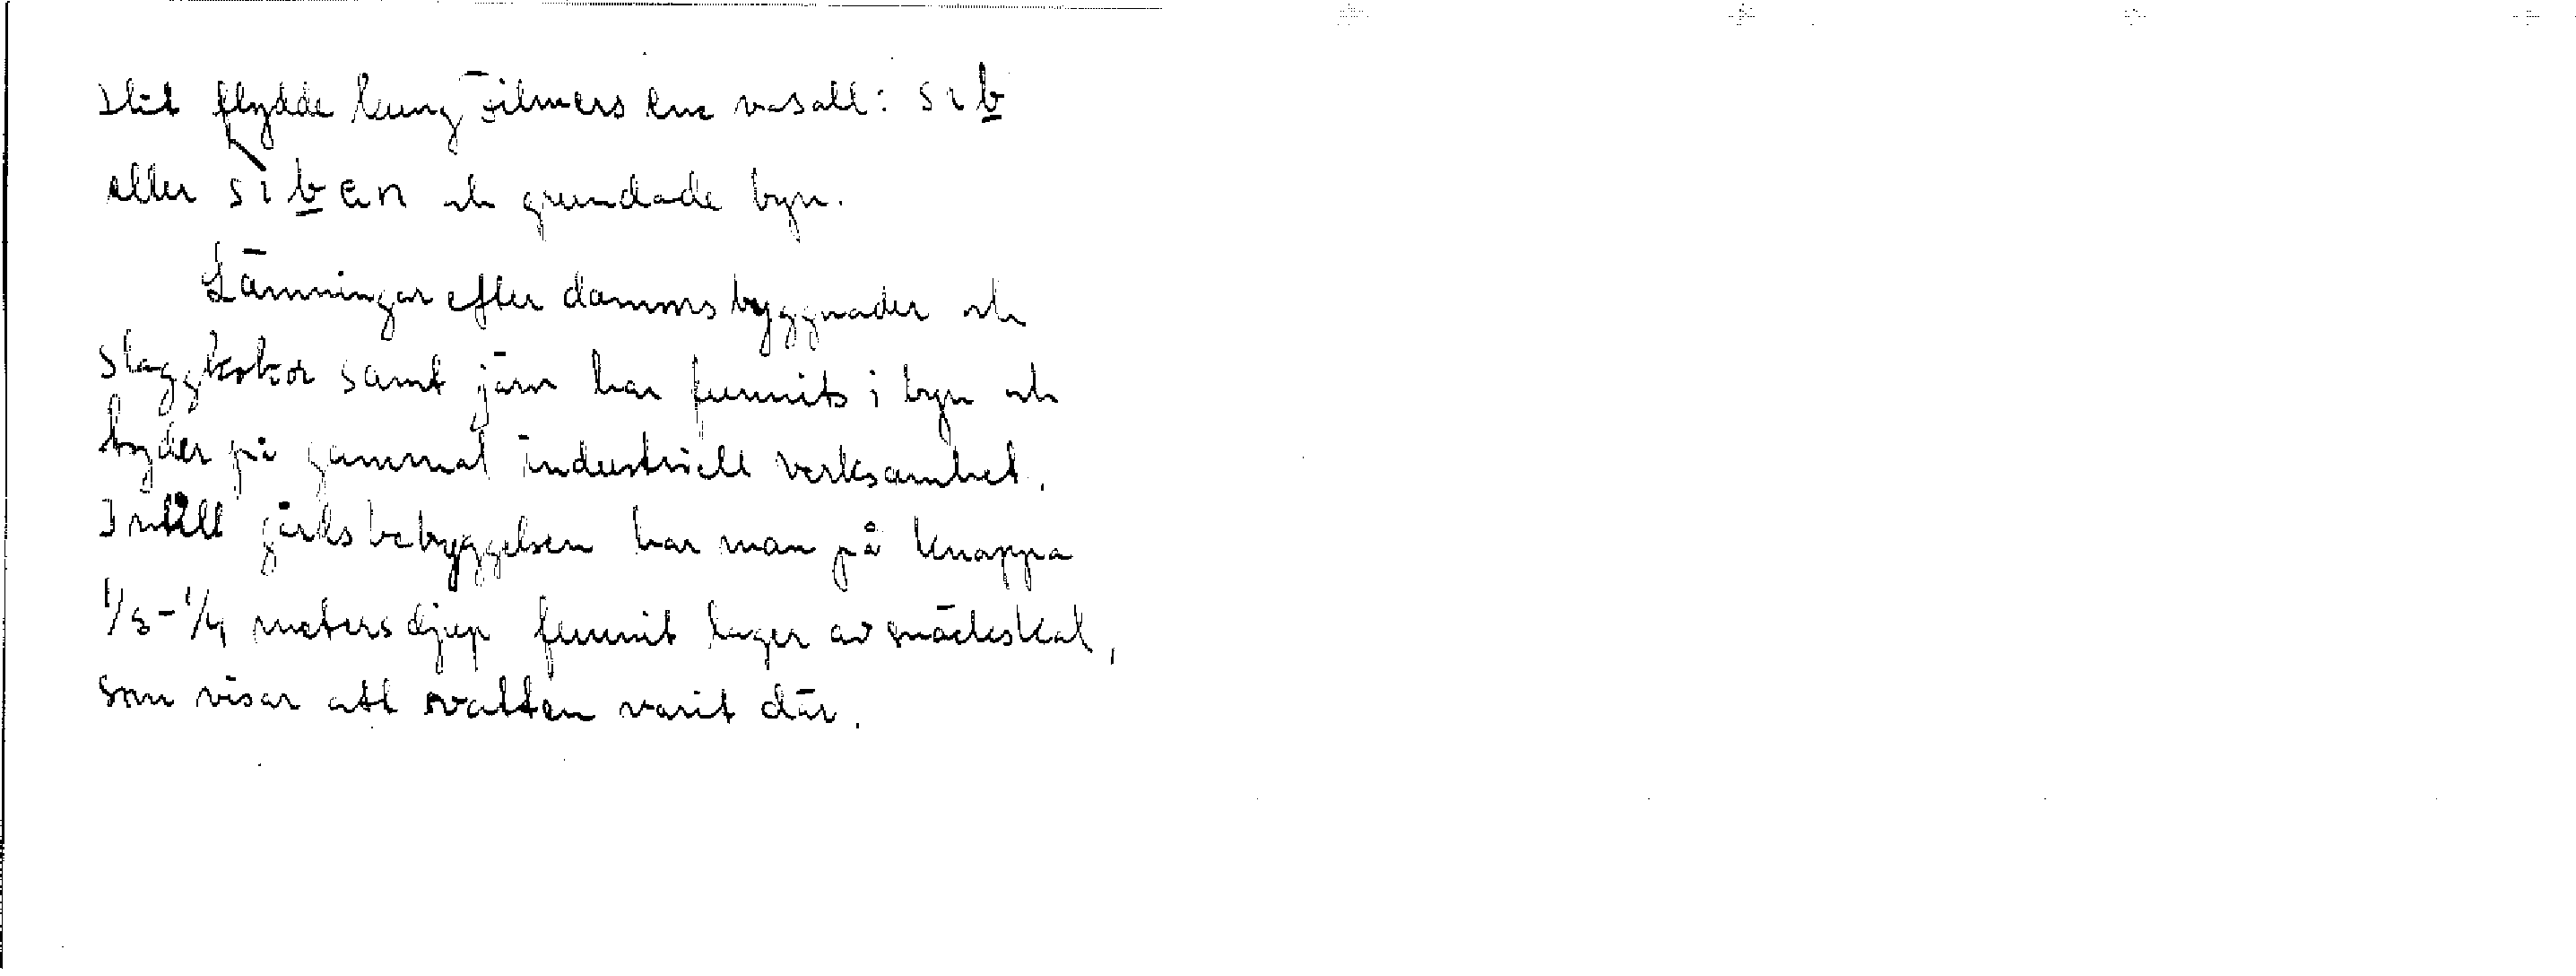 Hit flydde kung Filmers ene vasall: Sib
eller Siben och grundade byn.
Lämningar efter dammsbyggnader och
slaggkokor samt järn har funnits i byn och
tyder på gammal industriell verksamhet.
Intill gårdsbebyggelsen har man på knappa
1/3-1/4 meters djup funnit lager av snäckskal,
som visar att vatten varit där.